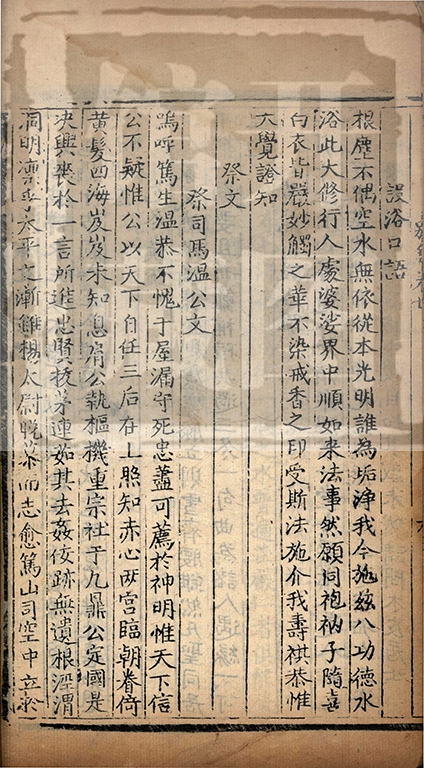 設浴口語
根塵不偶空水無依從本光明誰為垢淨我今施茲八功德水
浴此大修行人處婆娑界中順如来法事然願同袍衲子隨喜
白衣皆嚴妙觸之華不染戒香之印受斯法施介我壽祺恭惟
大覺證知
祭文
祭司馬温公文
嗚呼篤生温恭不愧于屋漏守死忠藎可薦於神明惟天下信
公不疑惟公以天下自任三后在上照知赤心兩宫臨朝眷倚
黄髪四海岌岌未知息肩公執樞機重宗社于九鼎公定國是
决興喪於一言所進忠賢拔茅連茹其去姦佞跡無遺根涇渭
洞明濟乎太平之漸雖楊太尉晚莭而志愈篤山司空中立於